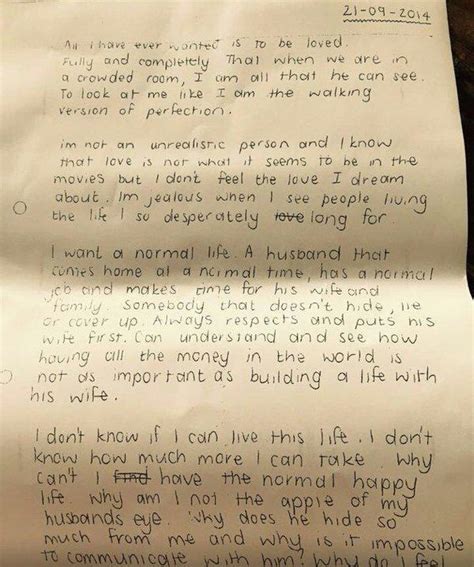 21-09-2014
All I have ever wanted is to be loved.
Fully and completely That when we are in
a crowded room, I am all that he can see.
To look at me like I am the walking
version of perfection.
im not an unrealistic person and I know
that love is not what it seems to be in the
movies but I dont feel the love I dream
about. Im jealous when I see people living
the life I so desperately love long for.
I want a normal life. A husband that
comes home at a normal time, has a normal
job and makes time for his wife and
family. Somebody that doesn't hide, lie
or cover up. Always respects and puts his
wife first. Can understand and see how
having all the money in the world is
not as important as building a life with
his wife.
I don't know if I can live this life. I don't
know how much more I can take. Why
can't I find have the normal happy
life. Why am I not the apple of my
husbands eye. Why does he hide so
much from me and why is it impossible
to communicate with him? Why do I feel